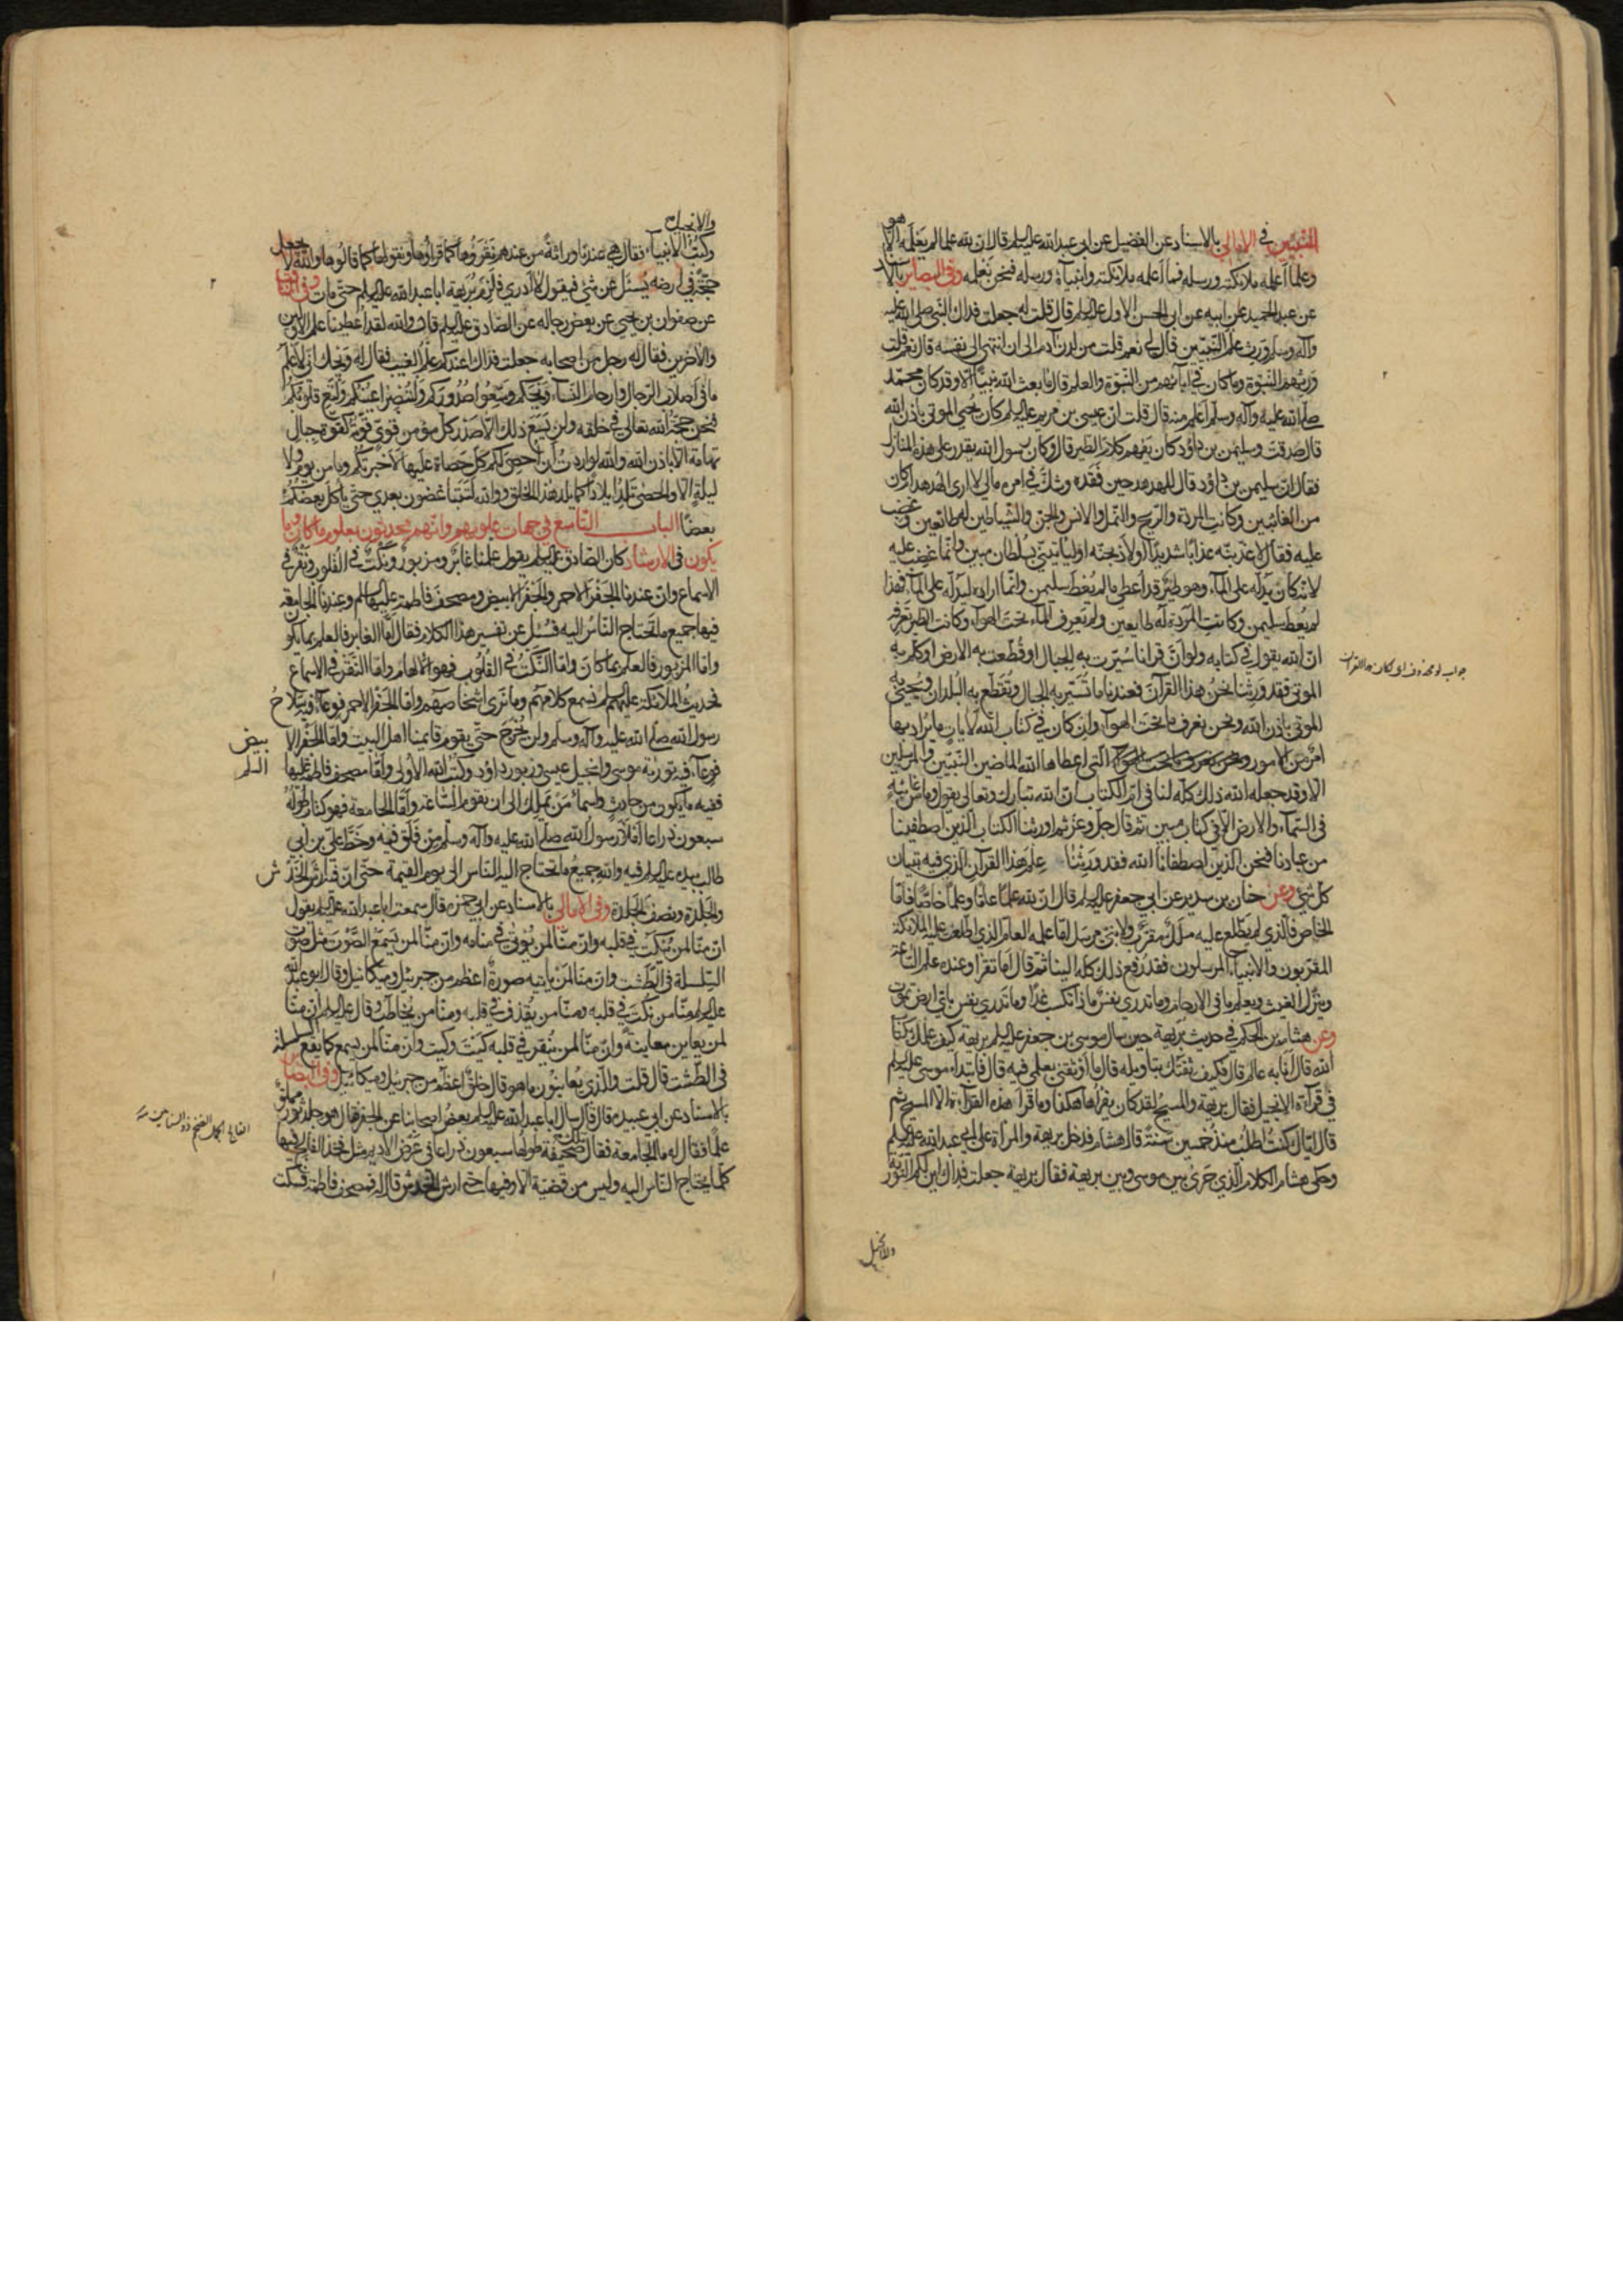 النبيين في الامالي بالاسناد عن الفضيل عن ابي عبد الله عليه السلم قال ان لله علما لم يعلمه الا هو
وعلما اعلمه ملائكته ورسله فما اعلمه ملائكته وانبياءه ورسله فنحن نعلمه وفي البصائر بالاسناد
عن عبد الحميد عن ابيه عن ابي الحسن الاول عليه السلم قال قلت له جعلت فداك النبي صلى الله عليه
وآله وسلم ورث علم النبيين قال لي نعم قلت من لدن آدم الى ان انتهى الى نفسه قال نعم قلت
ورثهم النبوة وما كان في آبائهم من النبوة والعلم قال ما بعث الله نبيا الا وقد كان محمد
صلى الله عليه وآله وسلم اعلم منه قال قلت ان عيسى بن مريم عليه السلم كان يحيي الموتى باذن الله
قال صدقت وسليمن بن داود كان يفهم كلام الطير قال وكان رسول الله يقدر على هذه المنازل
فقال ان سليمن بن داود قال للهدهد حين فقده وشك في امره مالي لا ارى الهدهد ام كان
من الغائبين وكانت المردة والريح والنمل والانس والجن والشياطين له طائعين وغضب
عليه فقال لاعذبنه عذابا شديدا او لاذبحنه او ليأتيني بسلطان مبين وانما غضب عليه
لانه كان يدله على الماء وهو طير قد اعطي ما لم يعط سليمن وانما اراده ليدله على الماء فهذا
لم يعط سليمن وكانت المردة له طايعين ولم تعرف الماء تحت الهواء وكانت الطير تعرفه
ان الله يقول في كتابه ولو ان قرانا سيرت به الجبال او قطعت به الارض او كلم به
الموتى فقد ورثنا نحن هذا القرآن فعندنا ما تسير به الجبال وتقطع به البلدان ويحيى به
الموتى باذن الله ونحن نعرف ما تحت الهواء وان كان في كتاب الله لآيات ما يراد بها
امر من الامور ونحن نعرف ما تحت الهواء التي اعطاها الله الماضين النبيين والمرسلين
الا وقد جعله الله ذلك كله لنا في ام الكتاب ان الله تبارك وتعالى يقول وما من غائبة
في السماء والارض الا في كتاب مبين ثم قال جل وعز ثم اورثنا الكتاب الذين اصطفينا
من عبادنا فنحن الذين اصطفانا الله فقد ورثنا علم هذا القرآن الذي فيه تبيان
كل شئ وعن حنان بن سدير عن ابي جعفر عليه السلم قال ان لله علما عاما وعلما خاصا فاما
الخاص فالذي لم يطلع عليه ملك مقرب ولا نبي مرسل اما علمه العام الذي اطلعت عليه الملائكة
المقربون والانبياء المرسلون فقد رفع ذلك كله الينا ثم قال اما تقرأ وعنده علم الساعة
وينزل الغيث ويعلم ما في الارحام وما تدري نفس ماذا تكسب غدا وما تدري نفس باي ارض تموت
وعن هشام بن الحكم في حديث بريهة حين سال موسى بن جعفر عليه السلم بريهة كيف علمك بكتاب
الله قال انا به عالم قال فكيف ثقتك بتاويله قال ما اوثقني بعلمي فيه قال فابتدا موسى عليه السلم
في قرآءة الانجيل فقال بريهة والمسيح لقد كان يقرأها هكذا وما قرأ هذه القرآءة الا المسيح ثم
قال اياك كنت اطلب منذ خمسين سنة قال هشام فدخل بريهة والمرأة على ابي عبد الله عليه السلم
وحكى هشام الكلام الذي جرى بين موسى وبين بريهة فقال بريهة جعلت فداك اين لكم التورية
والانجيل
والانجيل
وكتب الانبياء فقال هي عندنا وراثة من عندهم نقرؤها كما قرأوها ونقولها كما قالوها والله لا يجعل
حجة في ارضه يسئل عن شئ فيقول لا ادري فلزم بريهة ابا عبد الله عليه السلم حتى مات وفي
عن صفوان بن يحيى عن بعض رجاله عن الصادق عليه السلم قال والله لقد اعطينا علم الاولين
والآخرين فقال له رجل من اصحابه جعلت فداك اعندكم علم الغيب فقال له ويحك اني لاعلم
ما في اصلاب الرجال وارحام النساء ويحكم وسعوا صدوركم ولتبصر اعينكم ولتع قلوبكم
فنحن حجة الله تعالى في خلقه ولن يسع ذلك الا صدر كل مؤمن قوي قوته كقوة جبال
تهامة الا باذن الله والله لو اردت ان احصي لكم كل حصاة عليها لاخبرتكم وما من يوم ولا
ليلة الا والحصى تلد ايلادا كما يلد هذا الخلق ووالله لتتباغضون بعدي حتى يأكل بعضكم
بعضا الباب التاسع في جهات علومهم وانهم محدثون يعلمون ما كان وما
يكون في الارشاد كان الصادق عليه السلم يقول علمنا غابر ومزبور ونكت في القلوب ونقر في
الاسماع وان عندنا الجفر الاحمر والجفر الابيض ومصحف فاطمة عليها السلم وعندنا الجامعة
فيها جميع ما تحتاج الناس اليه فسئل عن تفسير هذا الكلام فقال اما الغابر فالعلم بما يكون
واما المزبور فالعلم بما كان واما النكت في القلوب فهو الالهام واما النقر في الاسماع
فحديث الملائكة عليهم السلم نسمع كلامهم وما نرى اشخاصهم واما الجفر الاحمر فوعاء فيه سلاح
رسول الله صلى الله عليه وآله وسلم ولن يخرج حتى يقوم قايمنا اهل البيت واما الجفر الابيض
فوعاء فيه تورية موسى وانجيل عيسى وزبور داود وكتب الله الاولى واما مصحف فاطمة عليها السلم
ففيه ما يكون من حادث واسماء من يملك الى ان تقوم الساعة واما الجامعة فهو كتاب طوله
سبعون ذراعا املاء رسول الله صلى الله عليه وآله وسلم من فلق فيه وخط علي بن ابي
طالب بيده عليه السلم فيه والله جميع ما تحتاج اليه الناس الى يوم القيمة حتى ان فيه ارش الخدش
والجلدة ونصف الجلدة وفي الامالي بالاسناد عن ابي حمزه قال سمعت ابا عبد الله عليه السلم يقول
ان منا لمن ينكت في قلبه وان منا لمن يؤتى في منامه وان منا لمن يسمع الصوت مثل صوت
السلسلة في الطشت وان منا لمن يأتيه صورة اعظم من جبرئيل وميكائيل وقال ابو عبد الله
عليه السلم منا من ينكت في قلبه ومنا من يقذف في قلبه ومنا من يخاطب وقال عليه السلم ان منا
لمن يعاين معاينة وان منا لمن ينقر في قلبه كيت وكيت وان منا لمن يسمع كما يقع السلسلة
في الطشت قال قلت والذي يعاينون ما هو قال خلق اعظم من جبرئيل وميكائيل وفي البصائر
بالاسناد عن ابي عبيده قال سال ابا عبد الله عليه السلم بعض اصحابنا عن الجفر فقال هو جلد ثور مملو
علما فقال له ما الجامعة فقال تلك صحيفة طولها سبعون ذراعا في عرض الاديم مثل فخذ الفالج فيها
كلما يحتاج الناس اليه وليس من قضية الا وفيها حتى ارش الخدش قال له فمصحف فاطمة فسكت
الفالج الجمل الضخم ذو السنامين